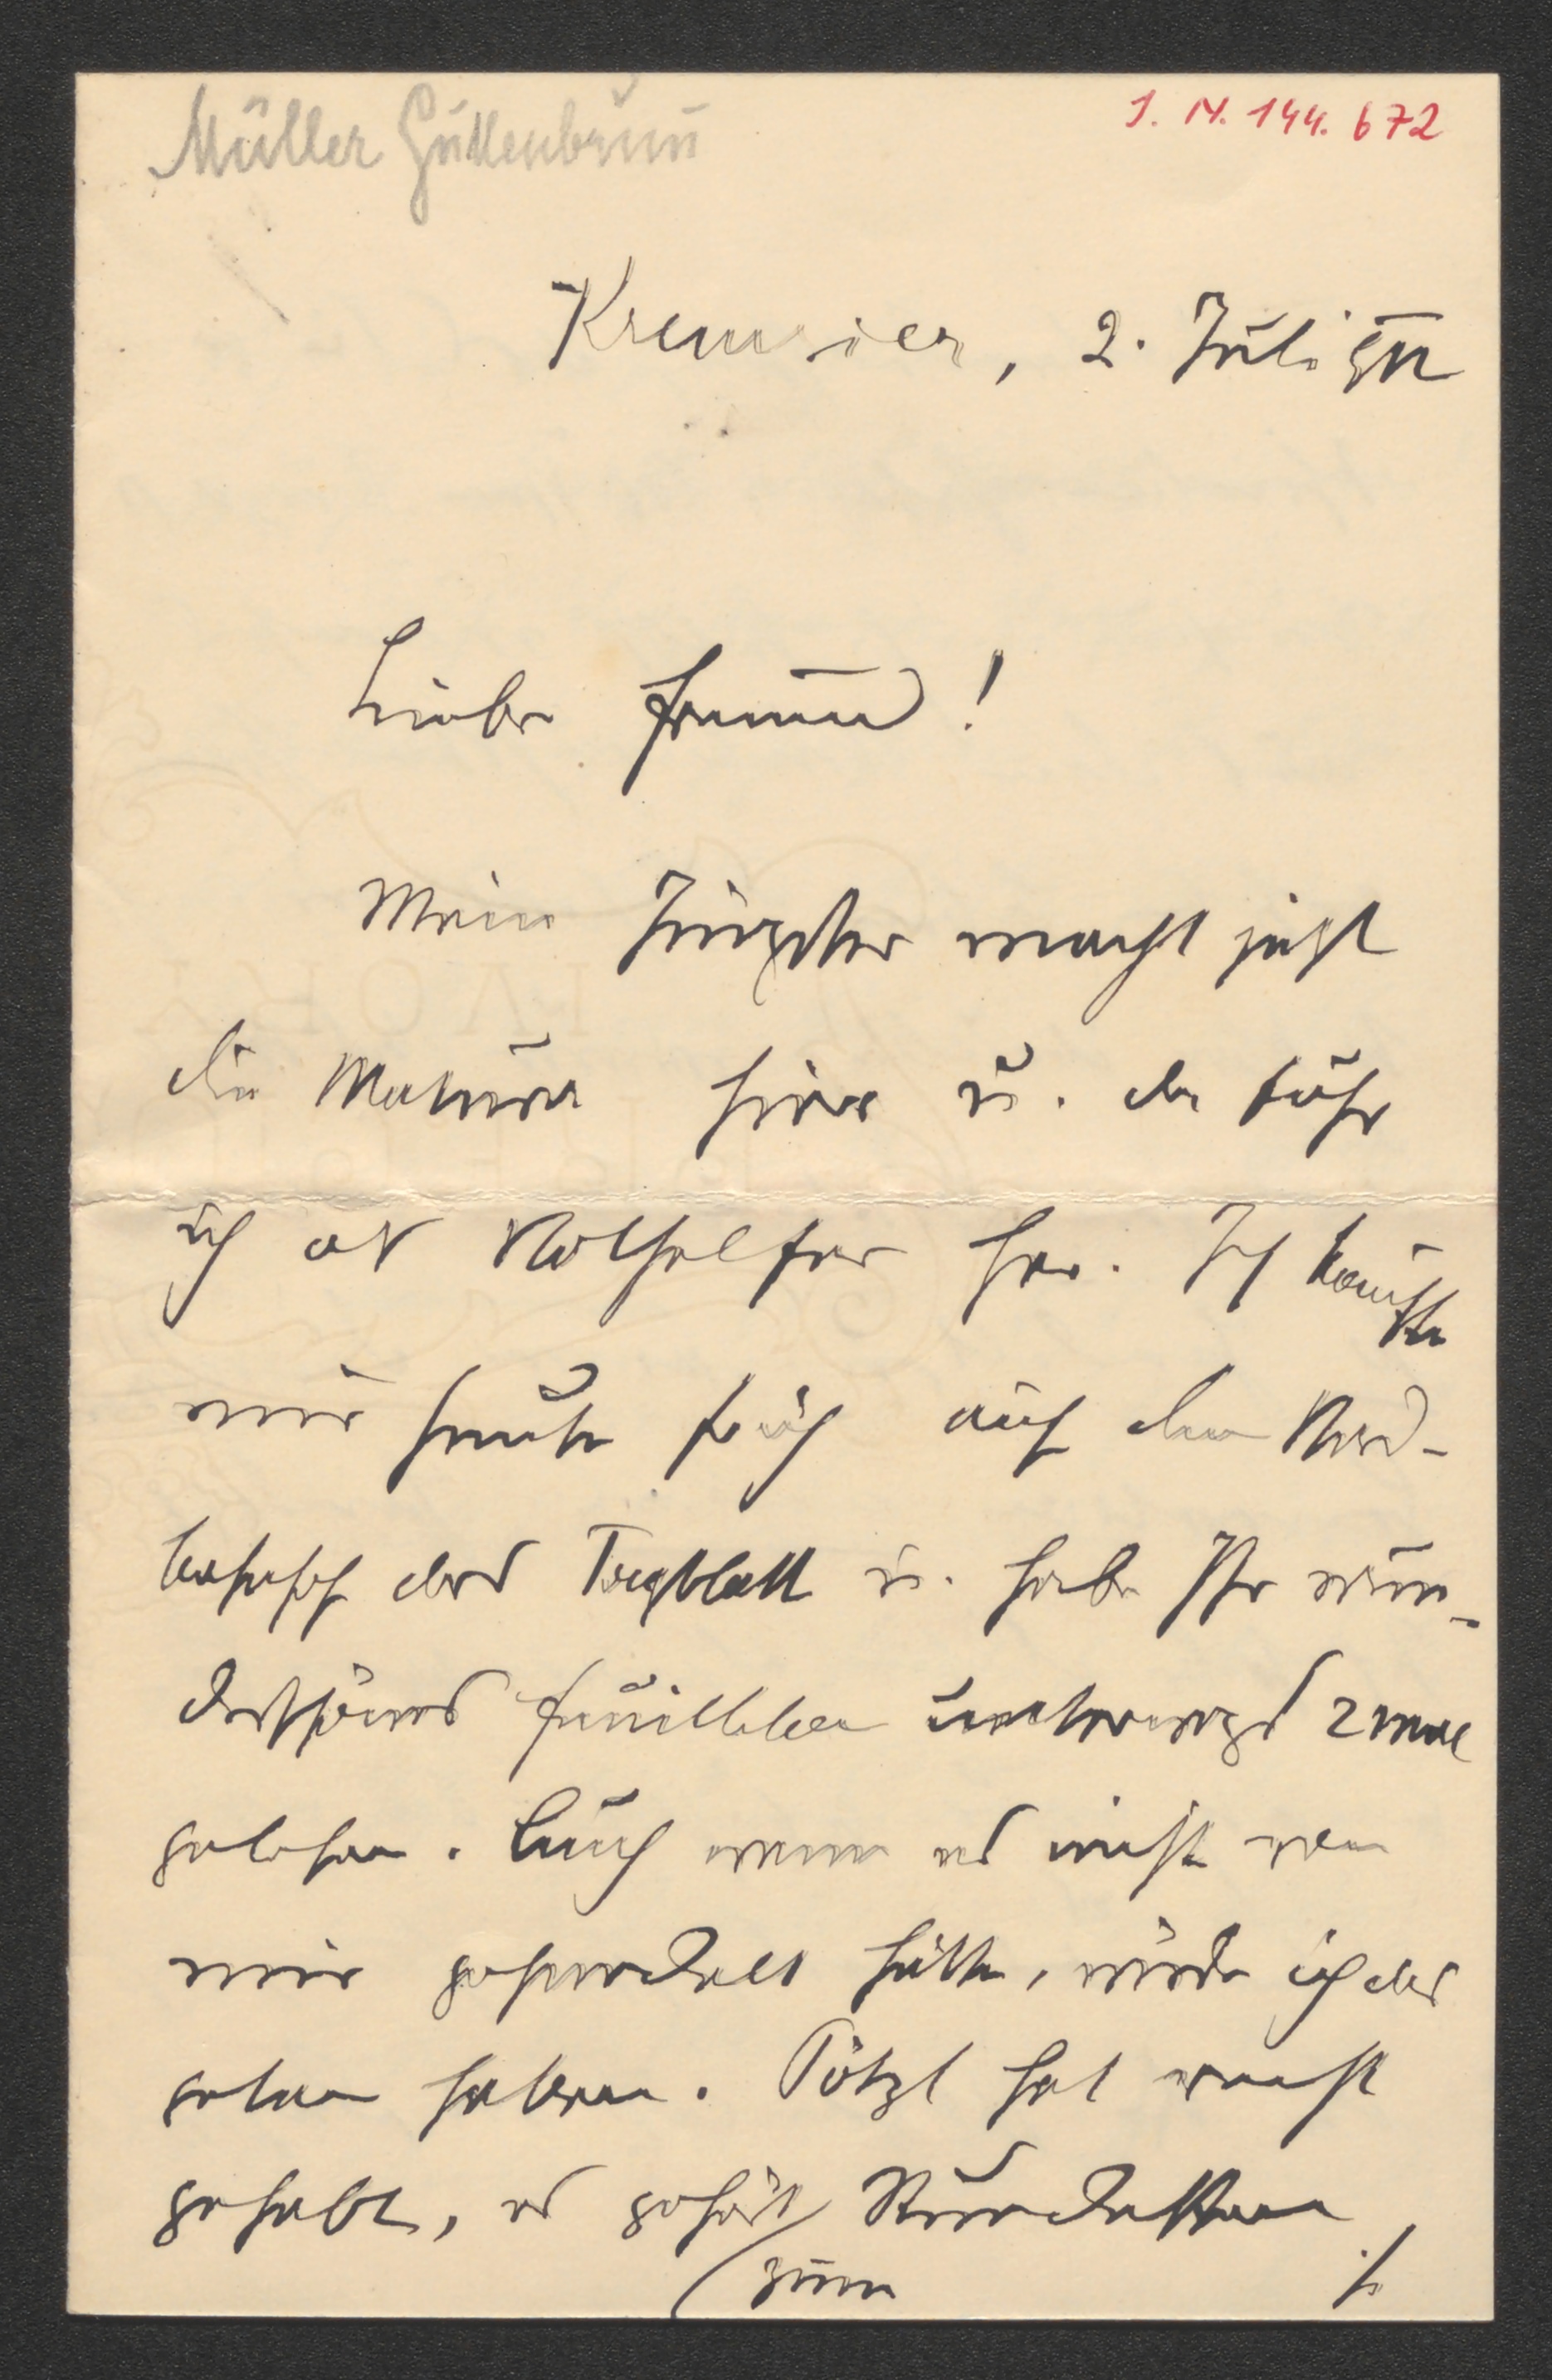 Müller Guttenbrunn
I. N. 144. 672
Kremsier, 2. Juli
Lieber Freund!
Mein Jüngster macht jetzt
die Matura hier u. da fuhr
ich als Nothelfer her. Ich kaufte
mir heute früh auf dem Nord-
bahnhof das Tagblatt u. habe Ihr wun-
derschönes Feuilleton unterwegs 2 mal
gelesen. Auch wenn es nicht von
mir gehandelt hätte, würde ich das
getan haben. Pötzl hat recht
gehabt, es gehört zum